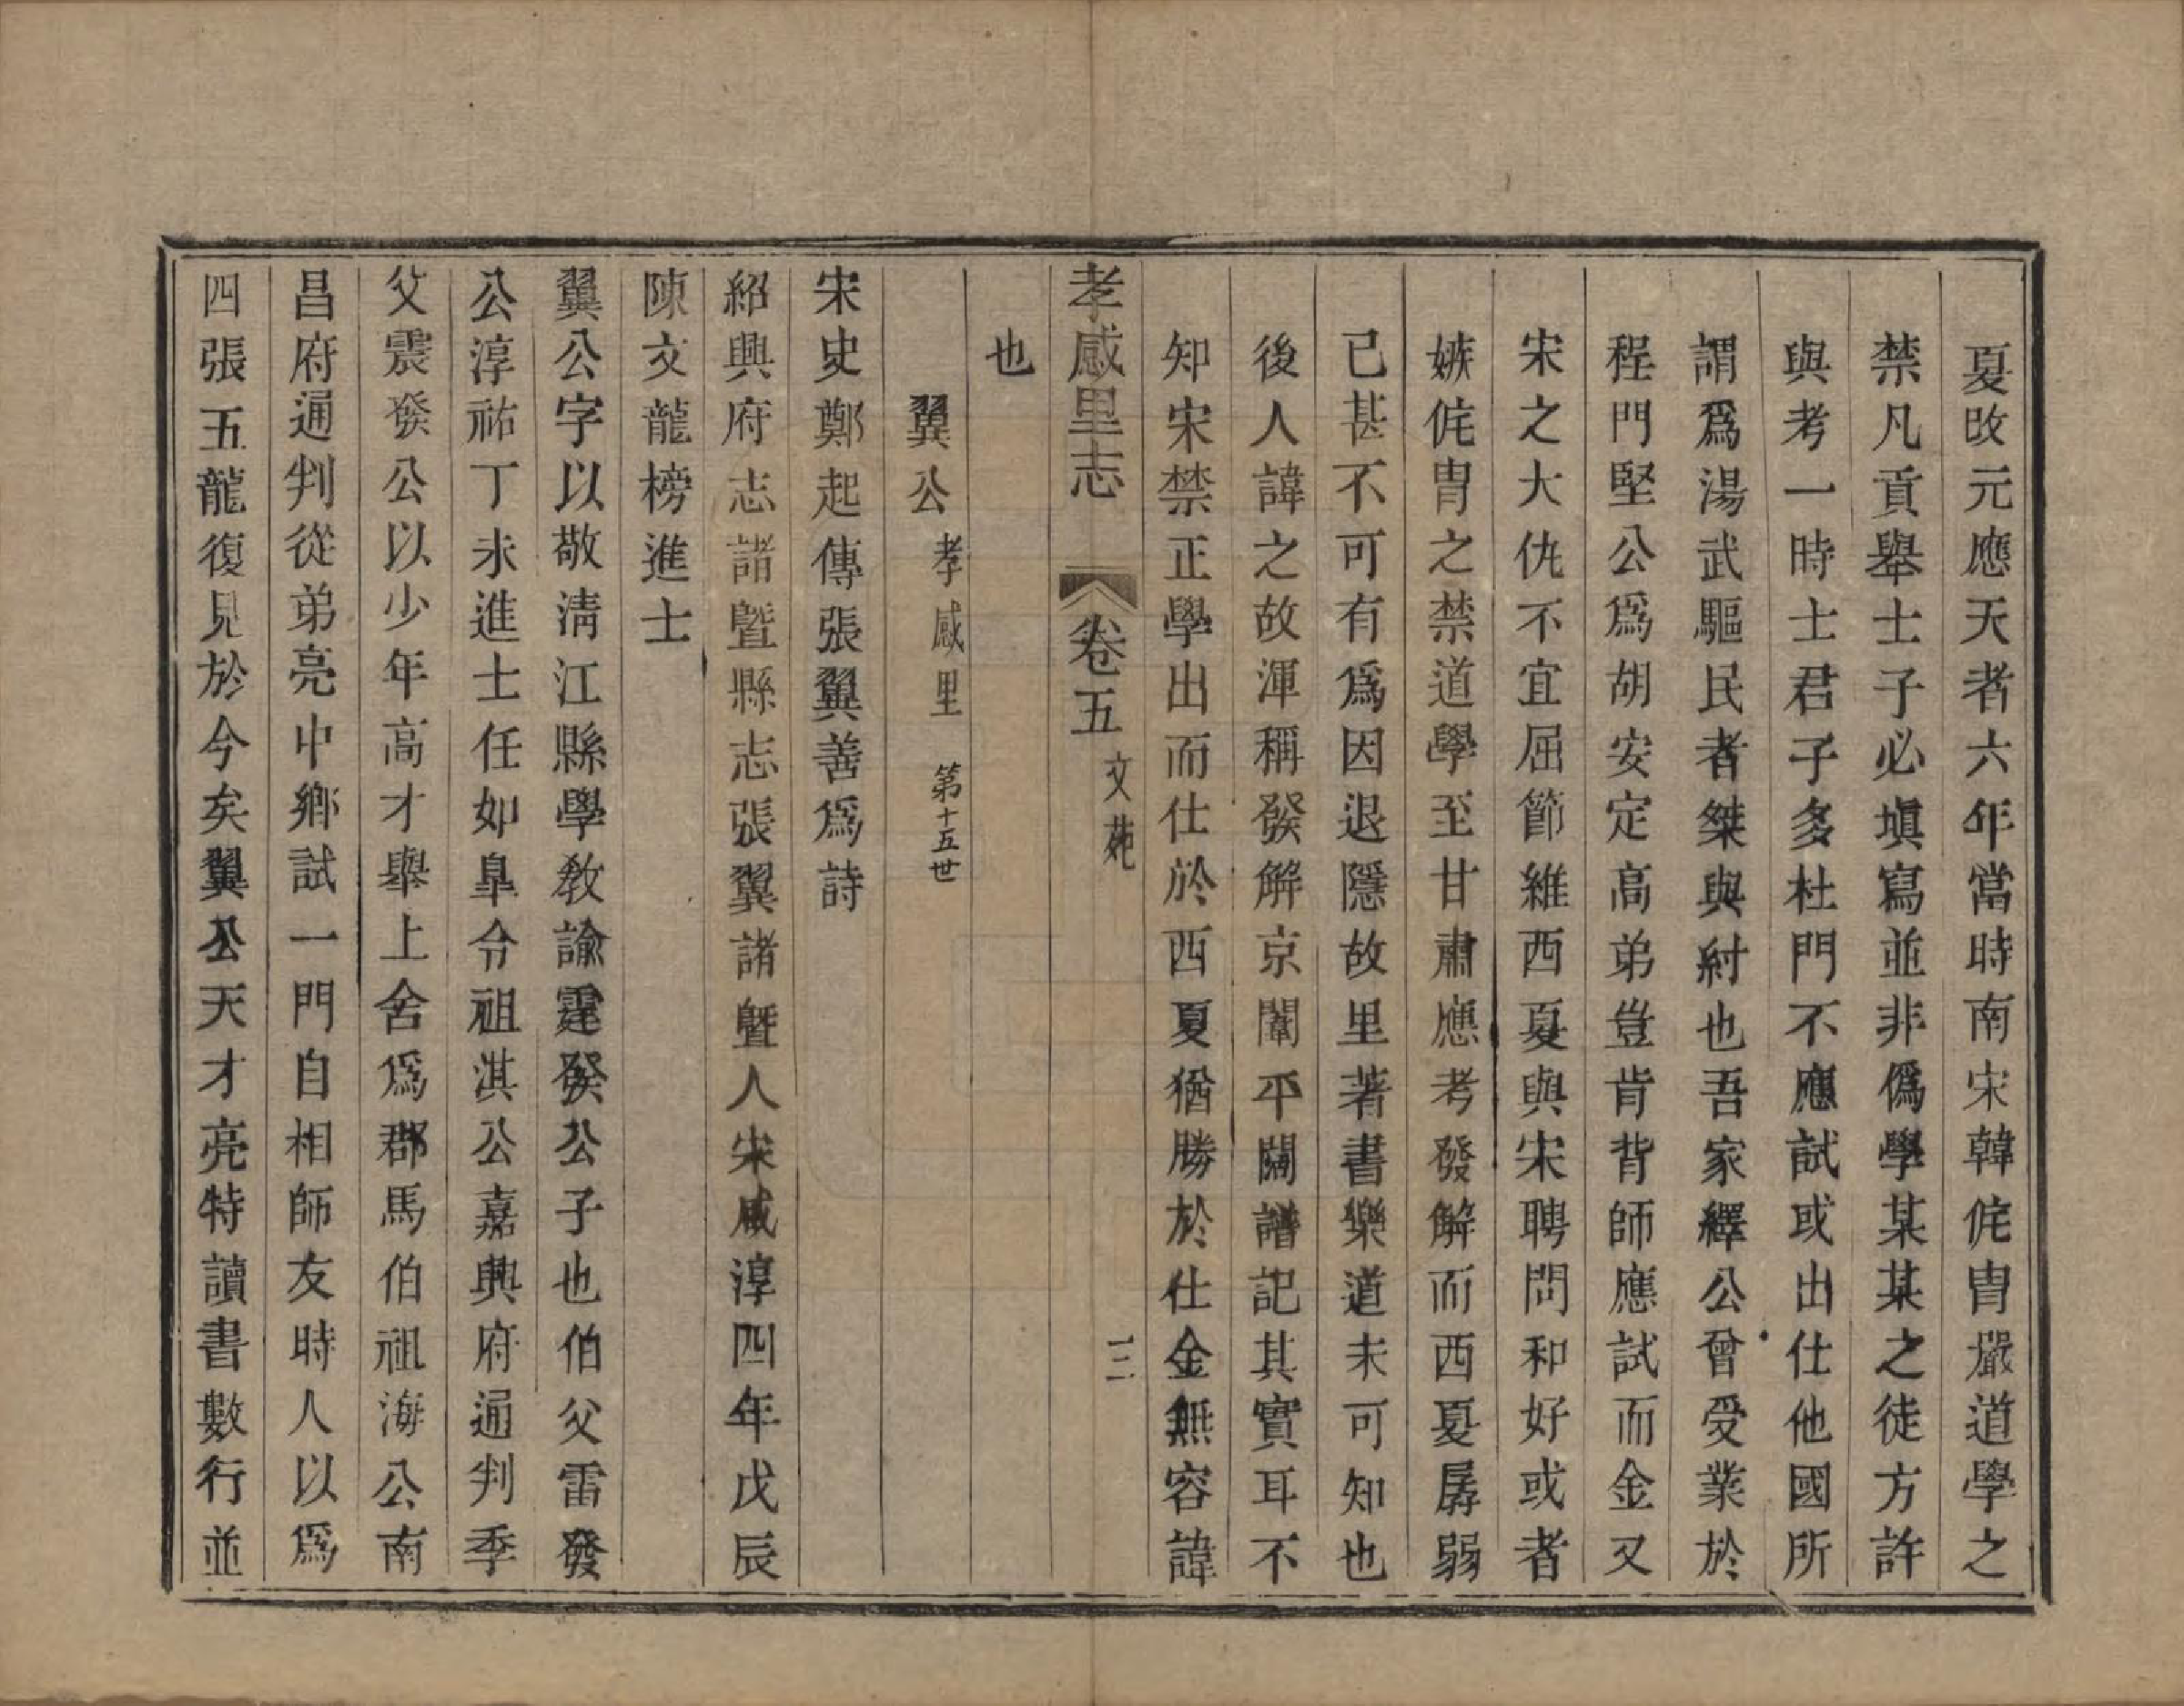 夏改元應天者六年當時南宋韓侂胄嚴道學之
禁凡貢舉士子必填寫並非僞學某某之徒方許
與考一時士君子多杜門不應試或出仕他國所
謂爲湯武驅民者桀與紂也吾家繹公曾受業於
程門堅公爲胡安定高弟豈肯背師應試而金又
宋之大仇不宜屈節維西夏與宋聘問和好或者
嫉侂胄之禁道學至甘肅應考發解而西夏孱弱
已甚不可有爲因退隱故里著書樂道未可知也
後人諱之故渾稱發解京闈平闊譜記其實耳不
知宋禁正學出而仕於西夏猶勝於仕金無容諱
孝感里志 卷五 文苑 三
也
翼公 孝感里 第十五世
宋史鄭起傳張翼善爲詩
紹興府志諸暨縣志張翼諸暨人宋咸淳四年戊辰
陳文龍榜進士
翼公字以敬淸江縣學教諭霆發公子也伯父雷發
公淳祐丁未進士任如皐令祖淇公嘉興府通判季
父震發公以少年高才舉上舍爲郡馬伯祖海公南
昌府通判從弟亮中鄉試一門自相師友時人以爲
四張五龍復見於今矣翼公天才亮特讀書數行並